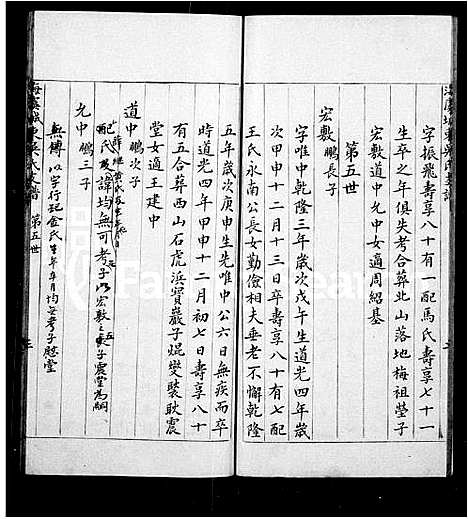 字振飛壽享八十有一配馬氏壽享七十一
生卒之年俱失考合葬北山落地梅祖塋子
宏敷道中女適周紹基
第五世
宏敷 鵬長子
字唯中乾隆三年歲次戊午生道光四年歲
次甲申十二月十三日卒壽享八十有七配
王氏永南公長女勤儉相夫垂老不懈乾隆
五年歲次庚申生先唯中公六日無疾而卒
時道光四年甲申十二月初七日壽享八十
有五合葬西山石虎浜寶巖子焜燮裝耿震
堂女適王建中
道中 鵬次子
配氏及諱均無可考子以宏敷之五子震堂為嗣
允中 鵬三子
無傳 以字行
第五世